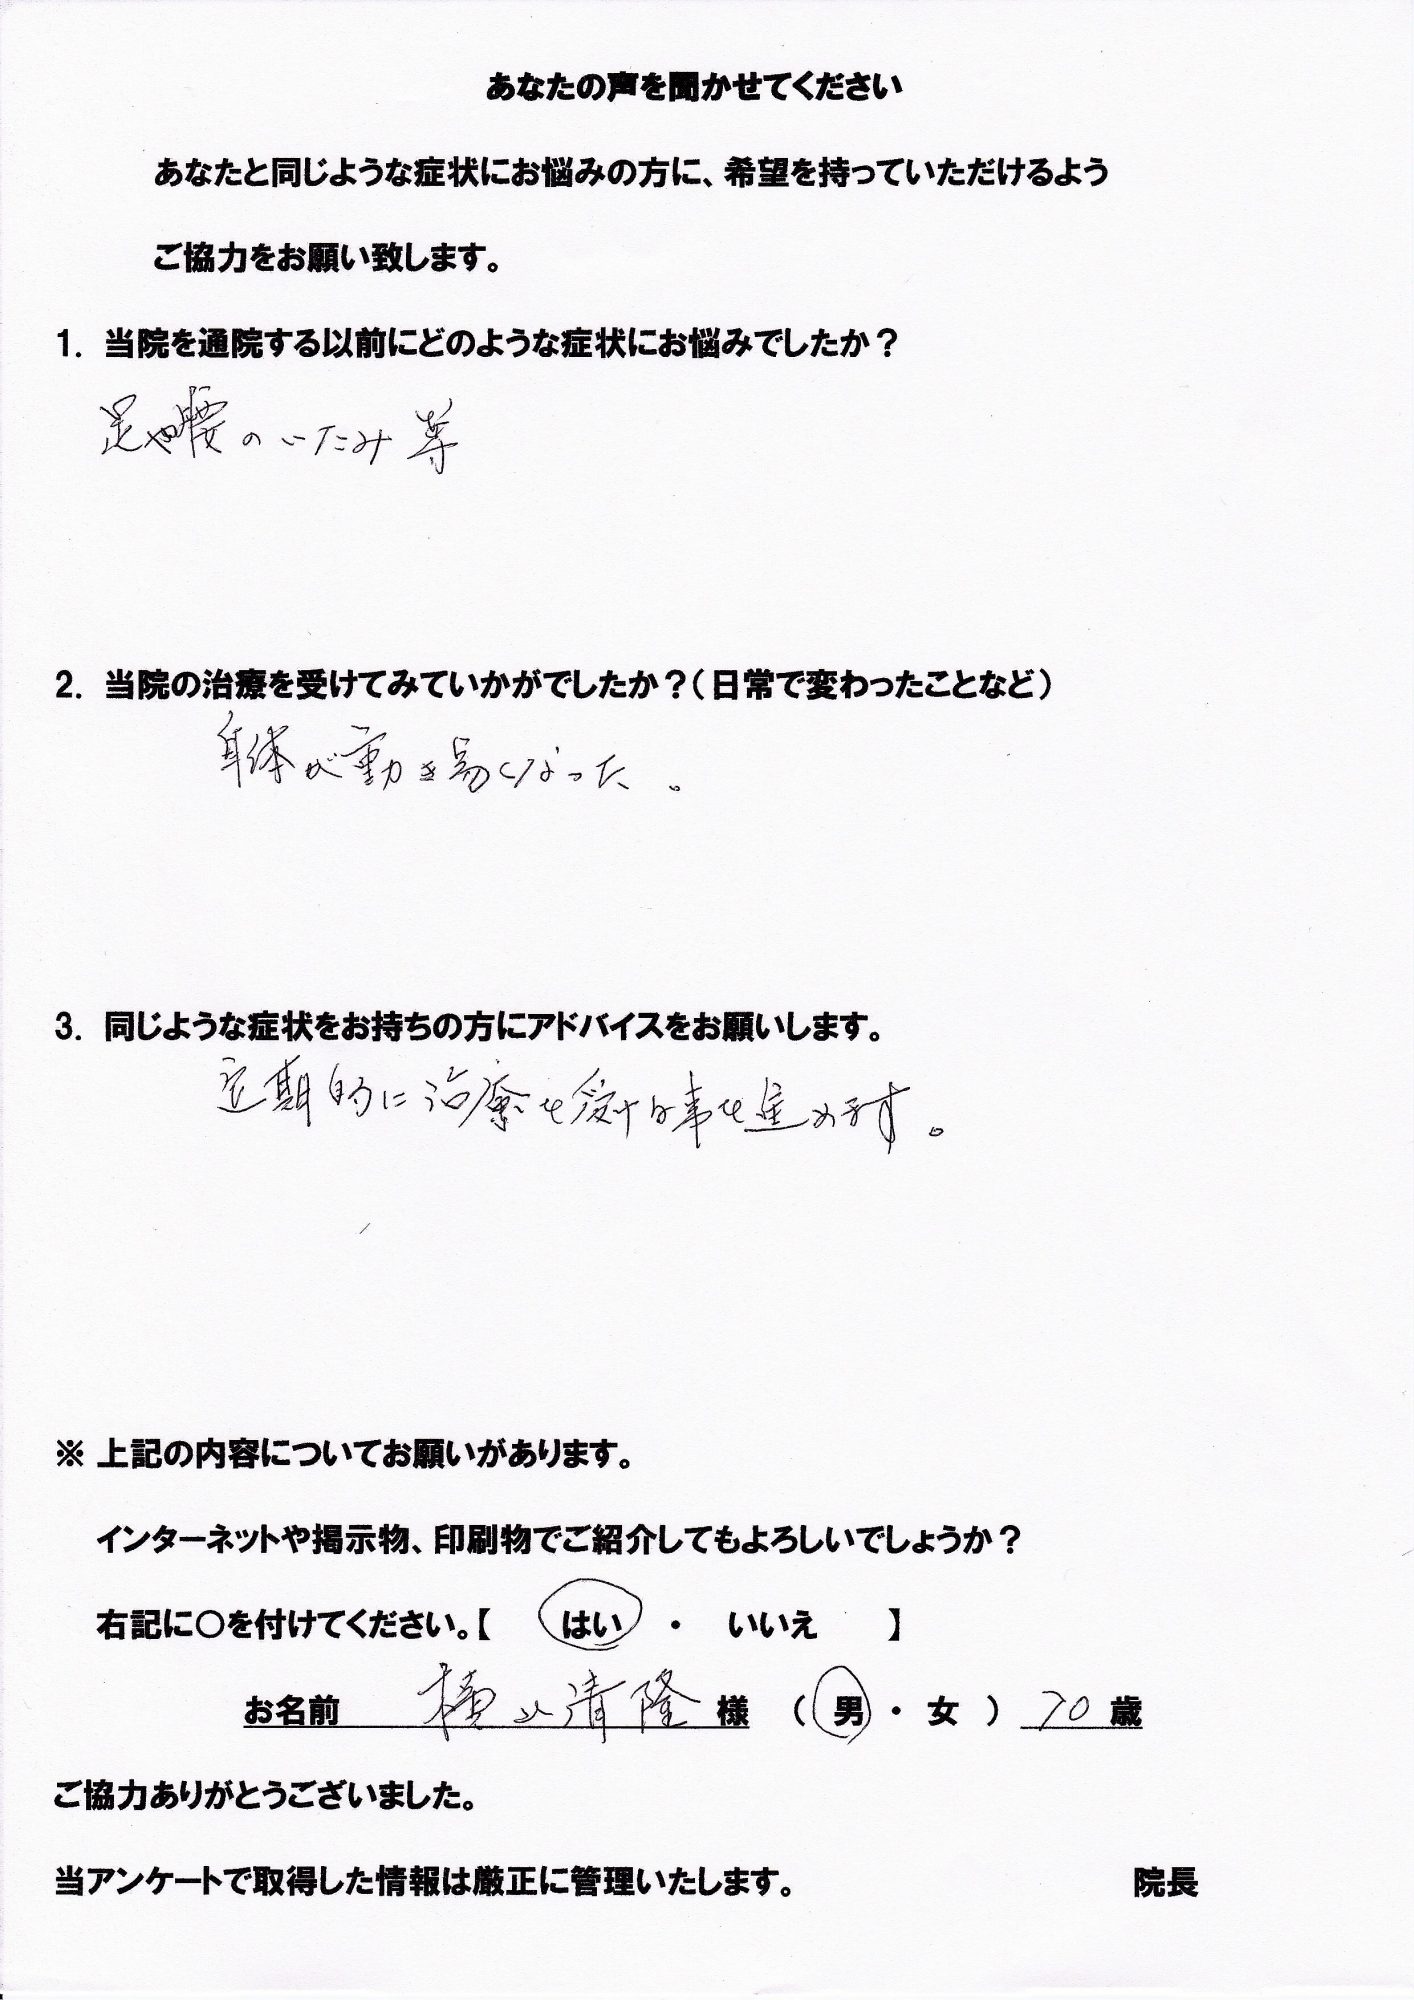 あなたの声を聞かせてください
あなたと同じような症状にお悩みの方に、希望を持っていただけるよう
ご協力をお願い致します。
1. 当院を通院する以前にどのような症状にお悩みでしたか？
足や腰のいたみ等
2. 当院の治療を受けてみていかがでしたか？（日常で変わったことなど）
身体が動き易くなった。
3. 同じような症状をお持ちの方にアドバイスをお願いします。
定期的に治療を受ける事を進めます。
※ 上記の内容についてお願いがあります。
インターネットや掲示物、印刷物でご紹介してもよろしいでしょうか？
右記に○を付けてください。【 はい ・ いいえ 】
お名前 横山清隆 様 （ 男 ・ 女 ） 70 歳
ご協力ありがとうございました。
当アンケートで取得した情報は厳正に管理いたします。 院長